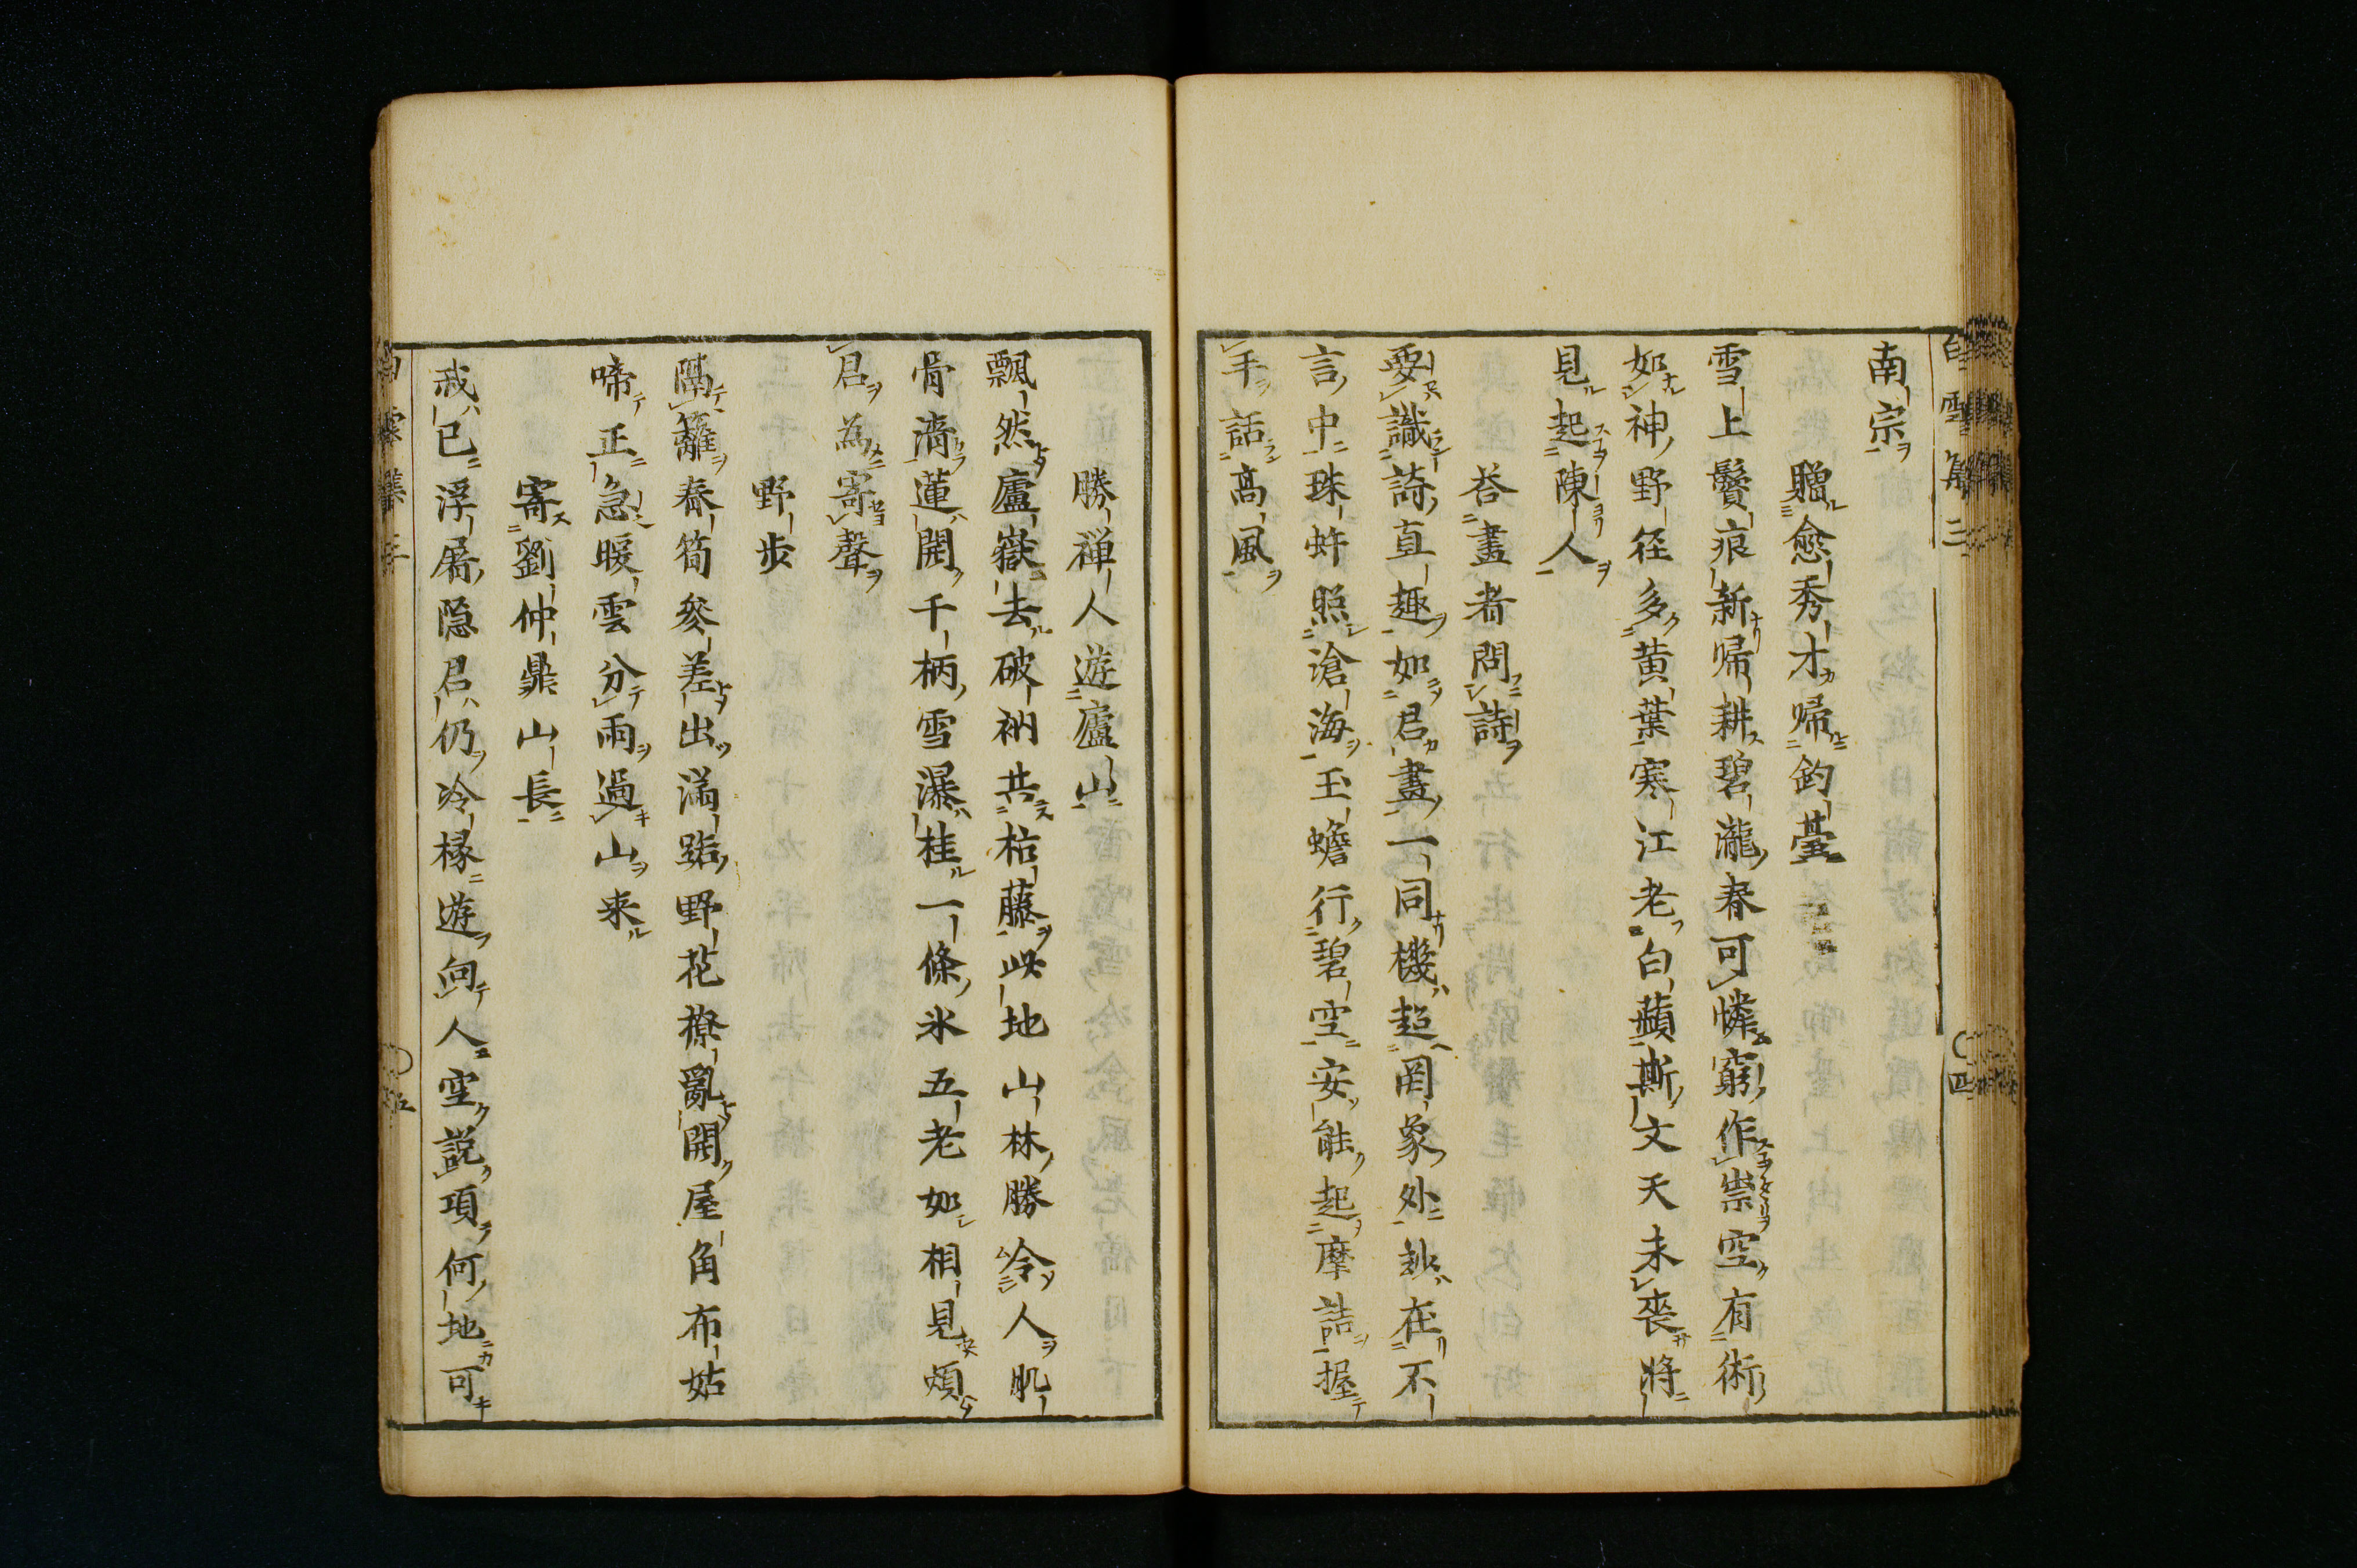 南宗
贈愈秀才歸釣臺
雪上鬢痕新歸耕碧瀧春可憐窮作祟空有術
如神野徑多黃葉寒江老白蘋斯文天未喪將
見起陳人
答畫者問詩
要識詩真趣如君畫一同機超罔象外妙在不
言中珠蚌照滄海玉蟾行碧空安能起摩詰握
手話高風
勝禪人遊廬山
飄然廬嶽去破衲共枯藤此地山林勝冷人肌
骨清蓮開千柄雪瀑桂一條氷五老如相見煩
君為寄聲
野步
隔籬春筍參差出滿路野花撩亂開屋角布姑
啼正急暖雲分雨過山来
寄劉仲鼎山長
戒已浮屠隱君仍冷掾遊向人空說項何地可
白雲集三
四